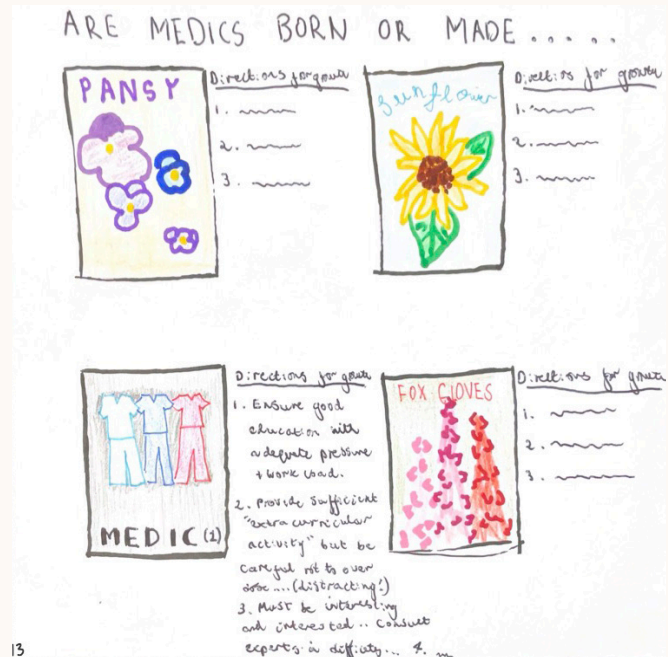 ARE MEDICS BORN OR MADE.....
PANSY
Directions for growth
1.
2.
3.
Sunflower
Directions for growth
1.
2.
3.
MEDIC (1)
Directions for growth
1. Ensure good
education with
adequate pressure
+ work load.
2. Provide sufficient
"extra curricular
activity" but be
careful not to over
dose ... (distracting!)
3. Must be interesting
and interested .. consult
experts in difficulty... 4.
FOX GLOVES
Directions for growth
1.
2.
3.
13